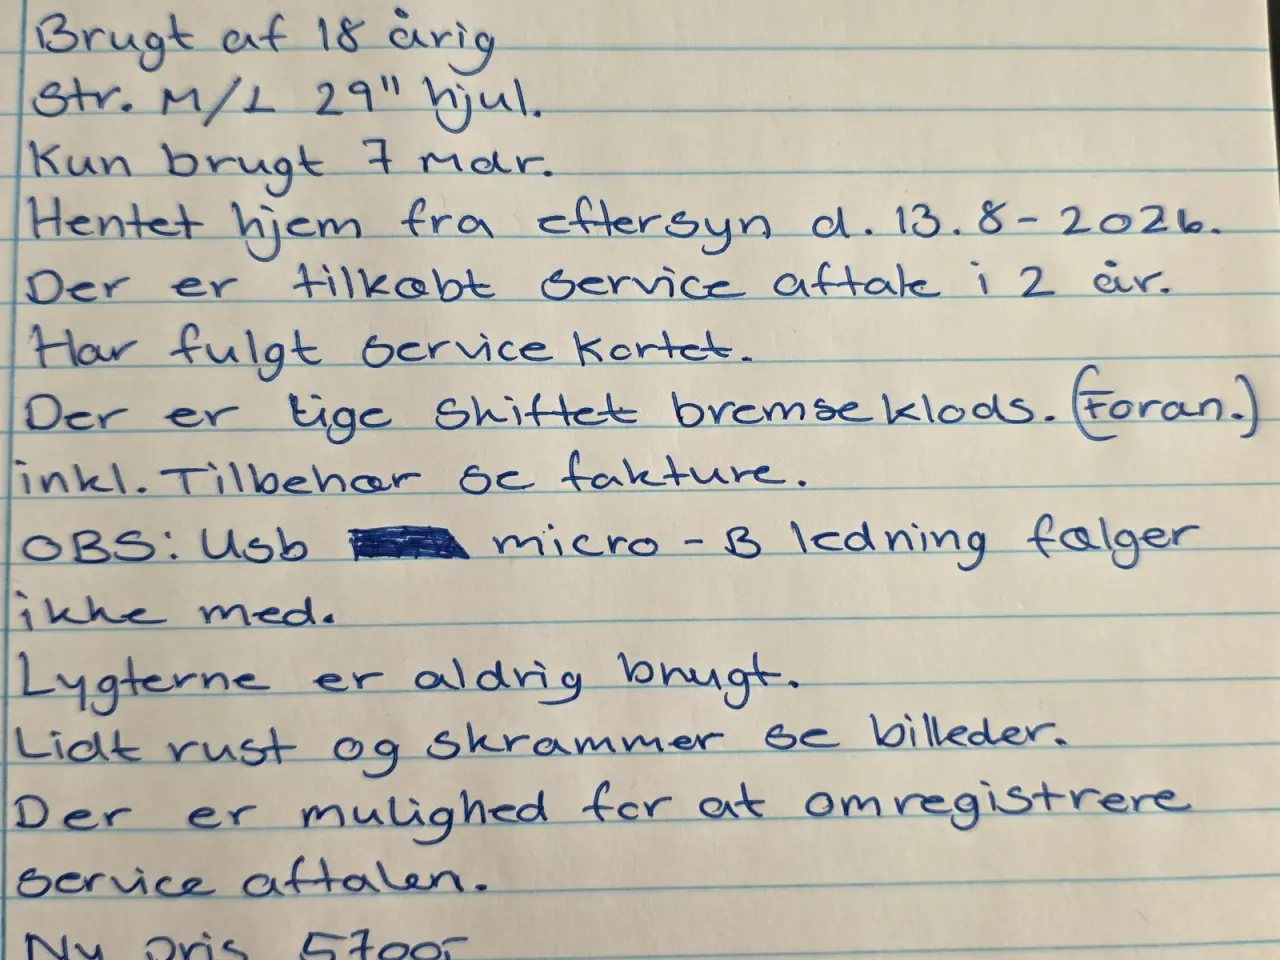 Brugt af 18 årig
Str. M/L 29" hjul.
Kun brugt 7 mdr.
Hentet hjem fra eftersyn d. 13.8-2026.
Der er tilkøbt service aftale i 2 år.
Har fulgt service kortet.
Der er lige skiftet bremse klods. (Foran.)
inkl. Tilbehør se fakture.
OBS: Usb micro-B ledning følger
ikke med.
Lygterne er aldrig brugt.
Lidt rust og skrammer se billeder.
Der er mulighed for at omregistrere
service aftalen.
Ny pris 5700,-